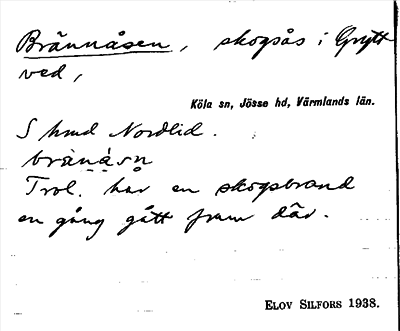 Brännåsen, skogsås i Grytt
ved,
Köla sn, Jösse hd, Värmlands län.
S hmd Nordlid.
brànásn
Trol. har en skogsbrand
en gång gått fram där.
ELOV SILFORS 1938.